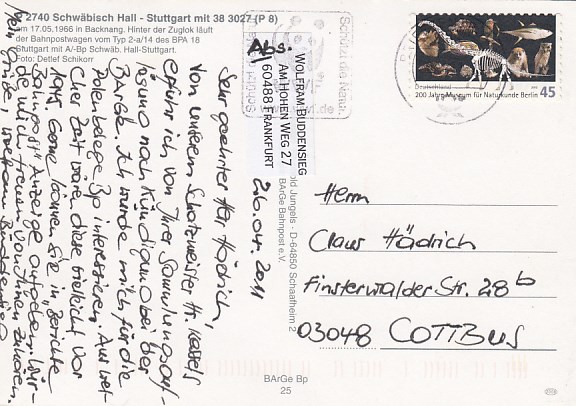 2740 Schwäbisch Hall - Stuttgart mit 38 3027 (P 8)
am 17.05.1966 in Backnang. Hinter der Zuglok läuft
der Bahnpostwagen vom Typ 2-a/14 des BPA 18
Stuttgart mit A/-Bp Schwäb. Hall-Stuttgart.
Foto: Detlef Schikorr
Abs:
WOLFRAM BUDDENSIEG
AM HOHEN WEG 27
60488 FRANKFURT
26.04.2011
Sehr geehrter Herr Hädrich,
von unserem Schatzmeister Hr. Kessels
erfuhr ich von Ihrer Sammlungsauf-
lösung nach Kündigung bei der
BArGe. Ich würde mich für die
Polenbelege Bp interessieren. Aus wel-
cher Zeit wären diese vielleicht vor
1945? Gerne können Sie in "Berichte
Bahnpost" Anzeige aufgeben. Wür-
de mich freuen von Ihnen zu hören.
Wolfram Buddensieg
Schützt die Natur
Deutschland
200 Jahre Museum für Naturkunde Berlin
45
Jungels - D-64850 Schaafheim 2
BArGe Bahnpost e.V.
Herrn
Claus Hädrich
Finsterwalder Str. 28b
03048 COTTBUS
BArGe Bp
25